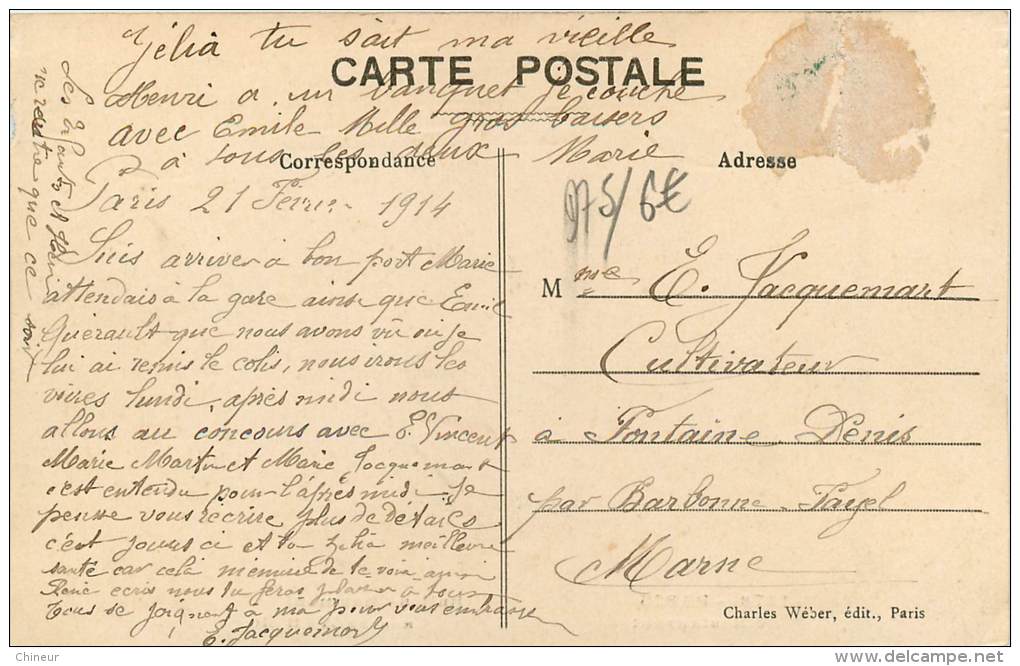 Zélia tu sait ma vieille
CARTE POSTALE
Henri a un banquet je couche
avec Emile Mille gros baisers
à tous les deux Marie
Correspondance
Adresse
975/6€
Paris 21 Février 1914
Suis arriver a bon port Marie
attendais à la gare ainsi que Emile
Guérault que nous avons vû ou je
lui ai remis le colis, nous irons les
voires lundi, après midi nous
allons au concours avec E. Vincent
Marie Martin et Marie Jacquemart
c'est entendu pour l'après midi. Je
pense vous récrire plus de détails
c'est jours ci et ta Zélia meilleure
santé car celà m'ennuie de te voir ainsi
René écris nous tu feras plaisir à tous
tous se joignent à moi pour vous embrasser
E. Jacquemart
Les enfants et
ne rentre que ce soir
Mme E. Jacquemart
Cultivateur
à Fontaine-Denis
par Barbonne-Fayel
Marne
Charles Wéber, édit., Paris
delcampe.net
Chineur